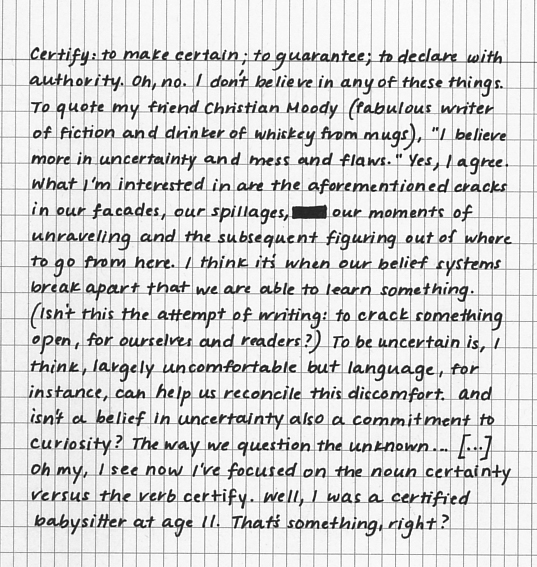 Certify: to make certain; to guarantee; to declare with
authority. Oh, no. I don't believe in any of these things.
To quote my friend Christian Moody (fabulous writer
of fiction and drinker of whiskey from mugs), "I believe
more in uncertainty and mess and flaws." Yes, I agree.
What I'm interested in are the aforementioned cracks
in our facades, our spillages, our moments of
unraveling and the subsequent figuring out of where
to go from here. I think it's when our belief systems
break apart that we are able to learn something.
(Isn't this the attempt of writing: to crack something
open, for ourselves and readers?) To be uncertain is, I
think, largely uncomfortable but language, for
instance, can help us reconcile this discomfort. and
isn't a belief in uncertainty also a commitment to
curiosity? The way we question the unknown... [...]
Oh my, I see now I've focused on the noun certainty
versus the verb certify. Well, I was a certified
babysitter at age 11. That's something, right?